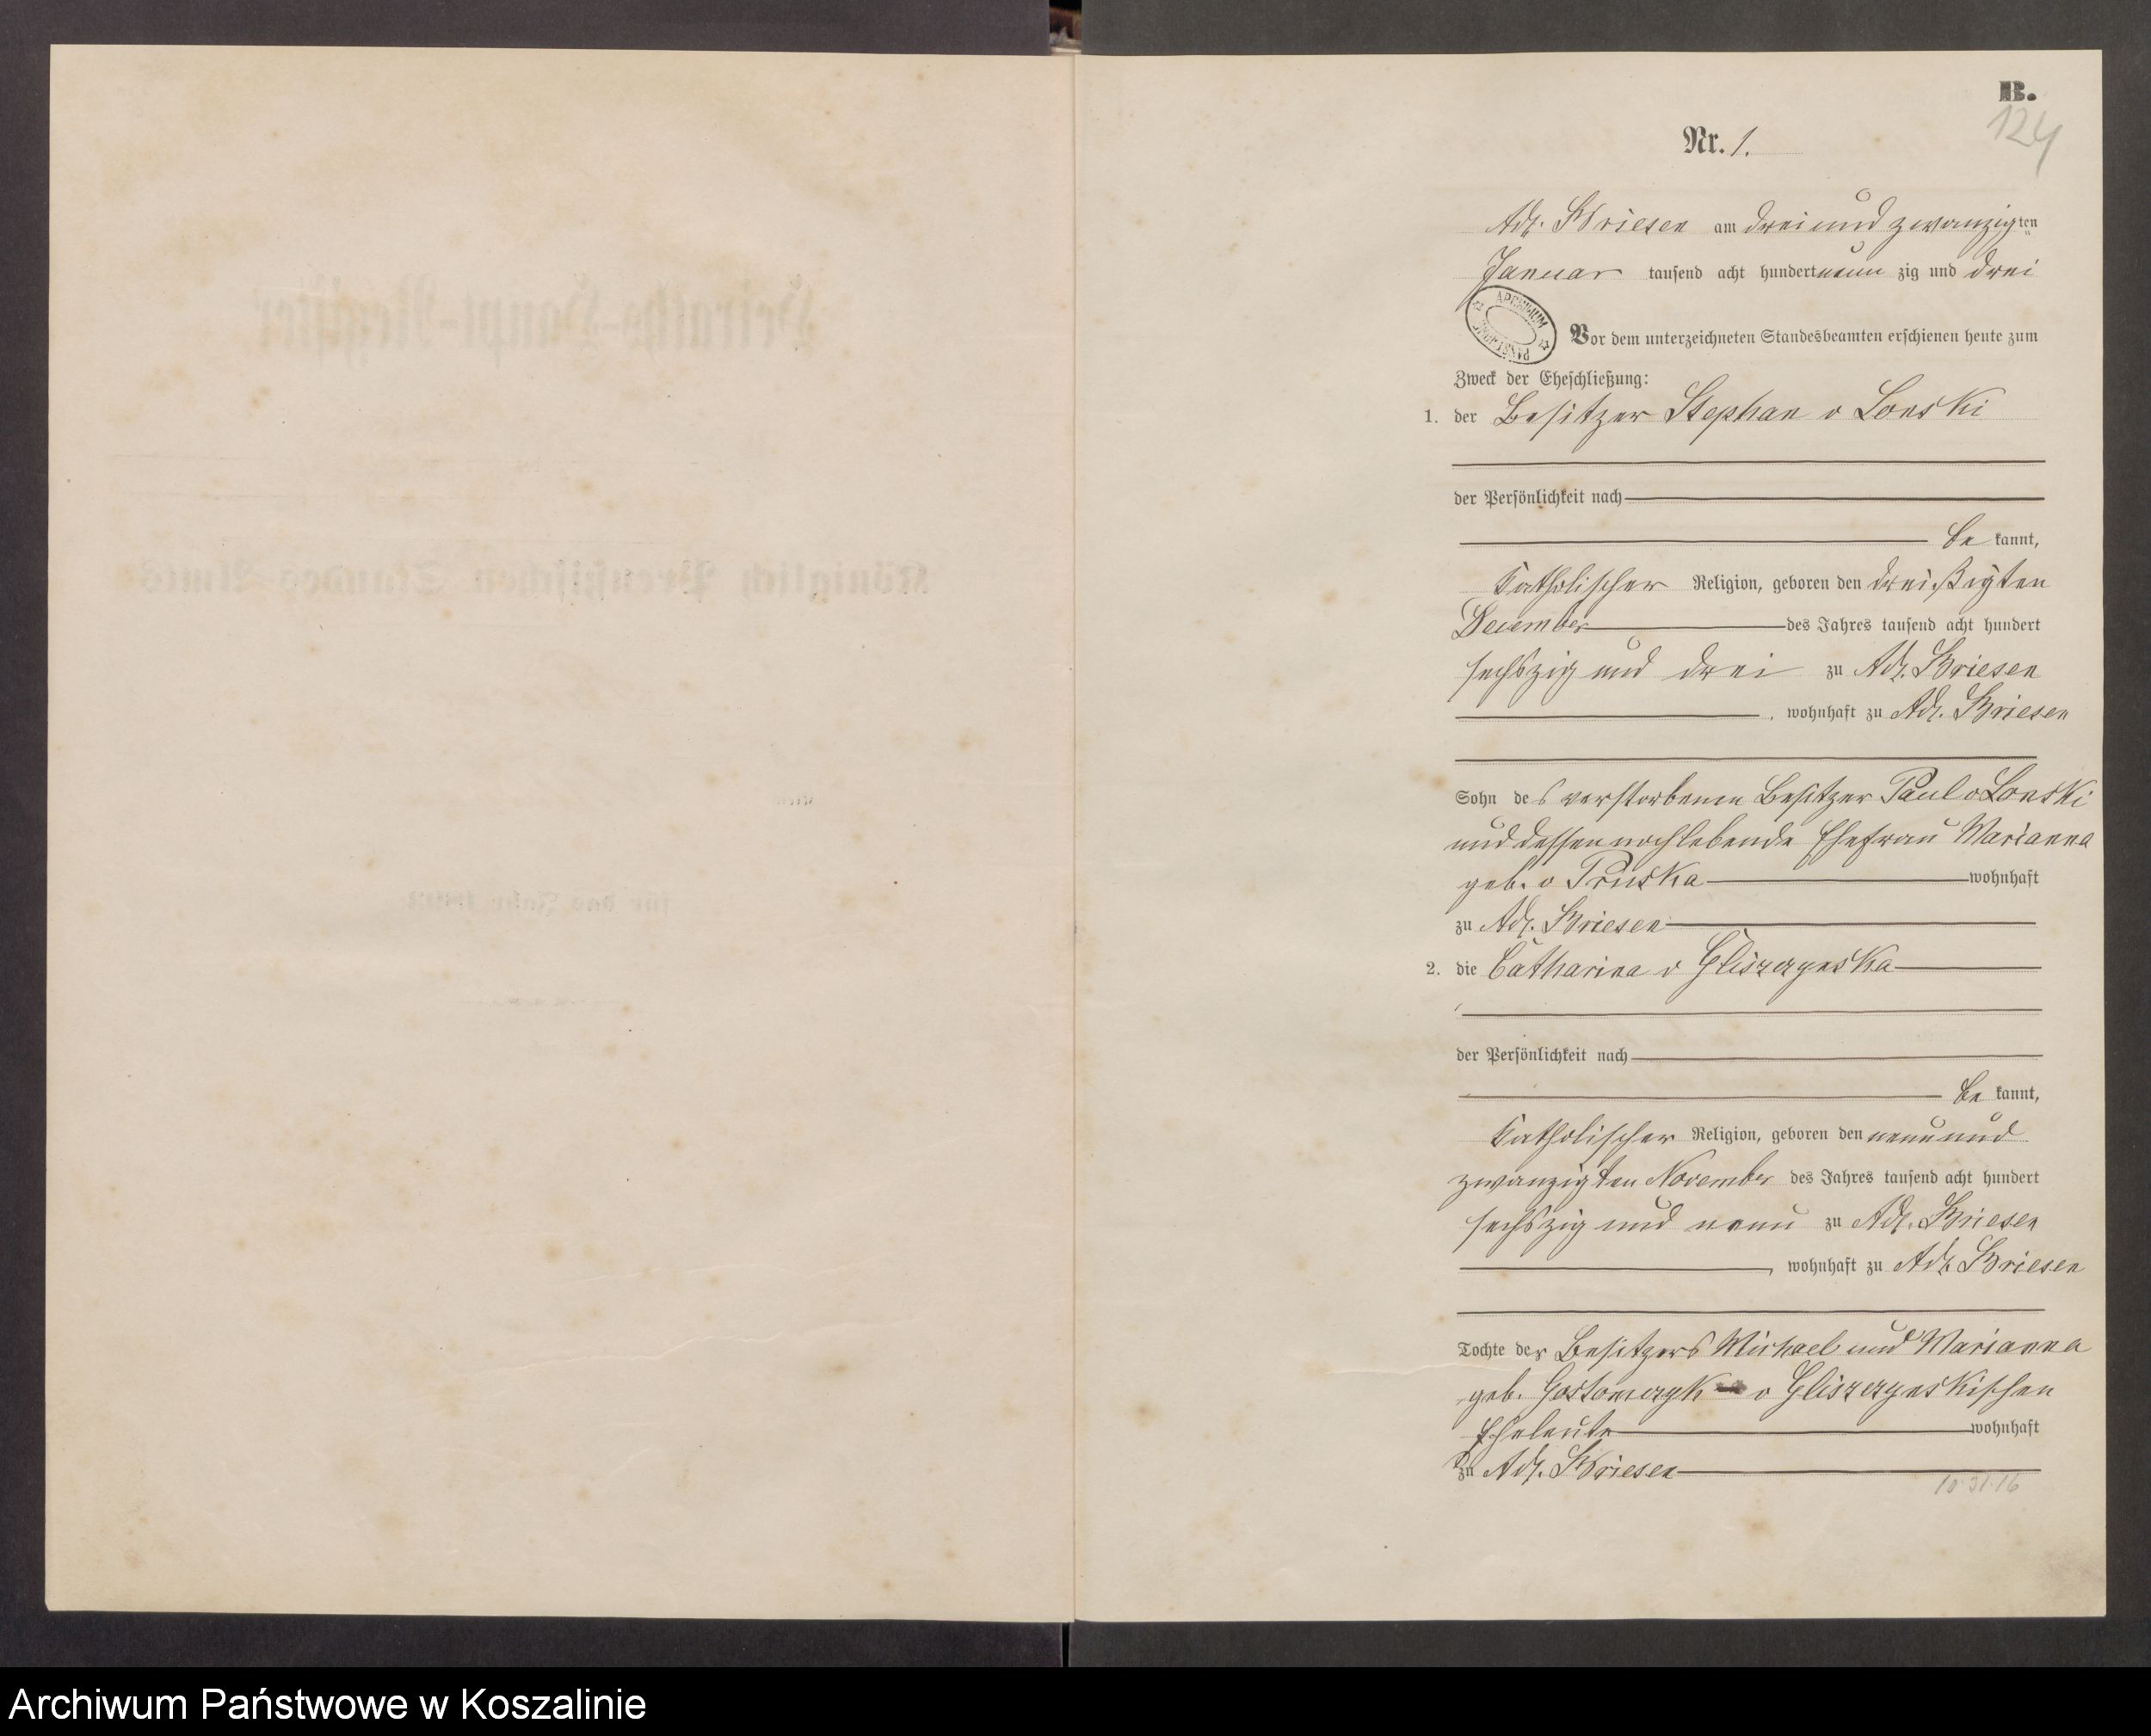 B.
124
Nr. 1.
Adl. Briesen am drei und zwanzigten
Januar tausend acht hundert neun zig und drei
ARCHIWUM
Vor dem unterzeichneten Standesbeamten erschienen heute zum
Zweck der Eheschließung:
1. der Besitzer Stephan v Lonski
der Persönlichkeit nach
be kannt,
katholischer Religion, geboren den dreißigten
December des Jahres tausend acht hundert
sechszig und drei zu Adl. Briesen
, wohnhaft zu Adl. Briesen
Sohn des verstorbenen Besitzer Paul v Lonski
und dessen noch lebende Ehefrau Marianna
geb. v Pruska wohnhaft
zu Adl. Briesen
2. die Catharina v Gliszczynska
der Persönlichkeit nach
be kannt,
katholischer Religion, geboren den neun und
zwanzigten November des Jahres tausend acht hundert
sechszig und neun zu Adl. Briesen
, wohnhaft zu Adl. Briesen
Tochter der Besitzers Michael und Marianna
geb. Gostomczyk v Gliszczynskischen
Eheleute wohnhaft
zu Adl. Briesen
10.31.16
Heiraths-Haupt-Register
Königlich Preußischen Standes-Amts
für das Jahr
Archiwum Państwowe w Koszalinie